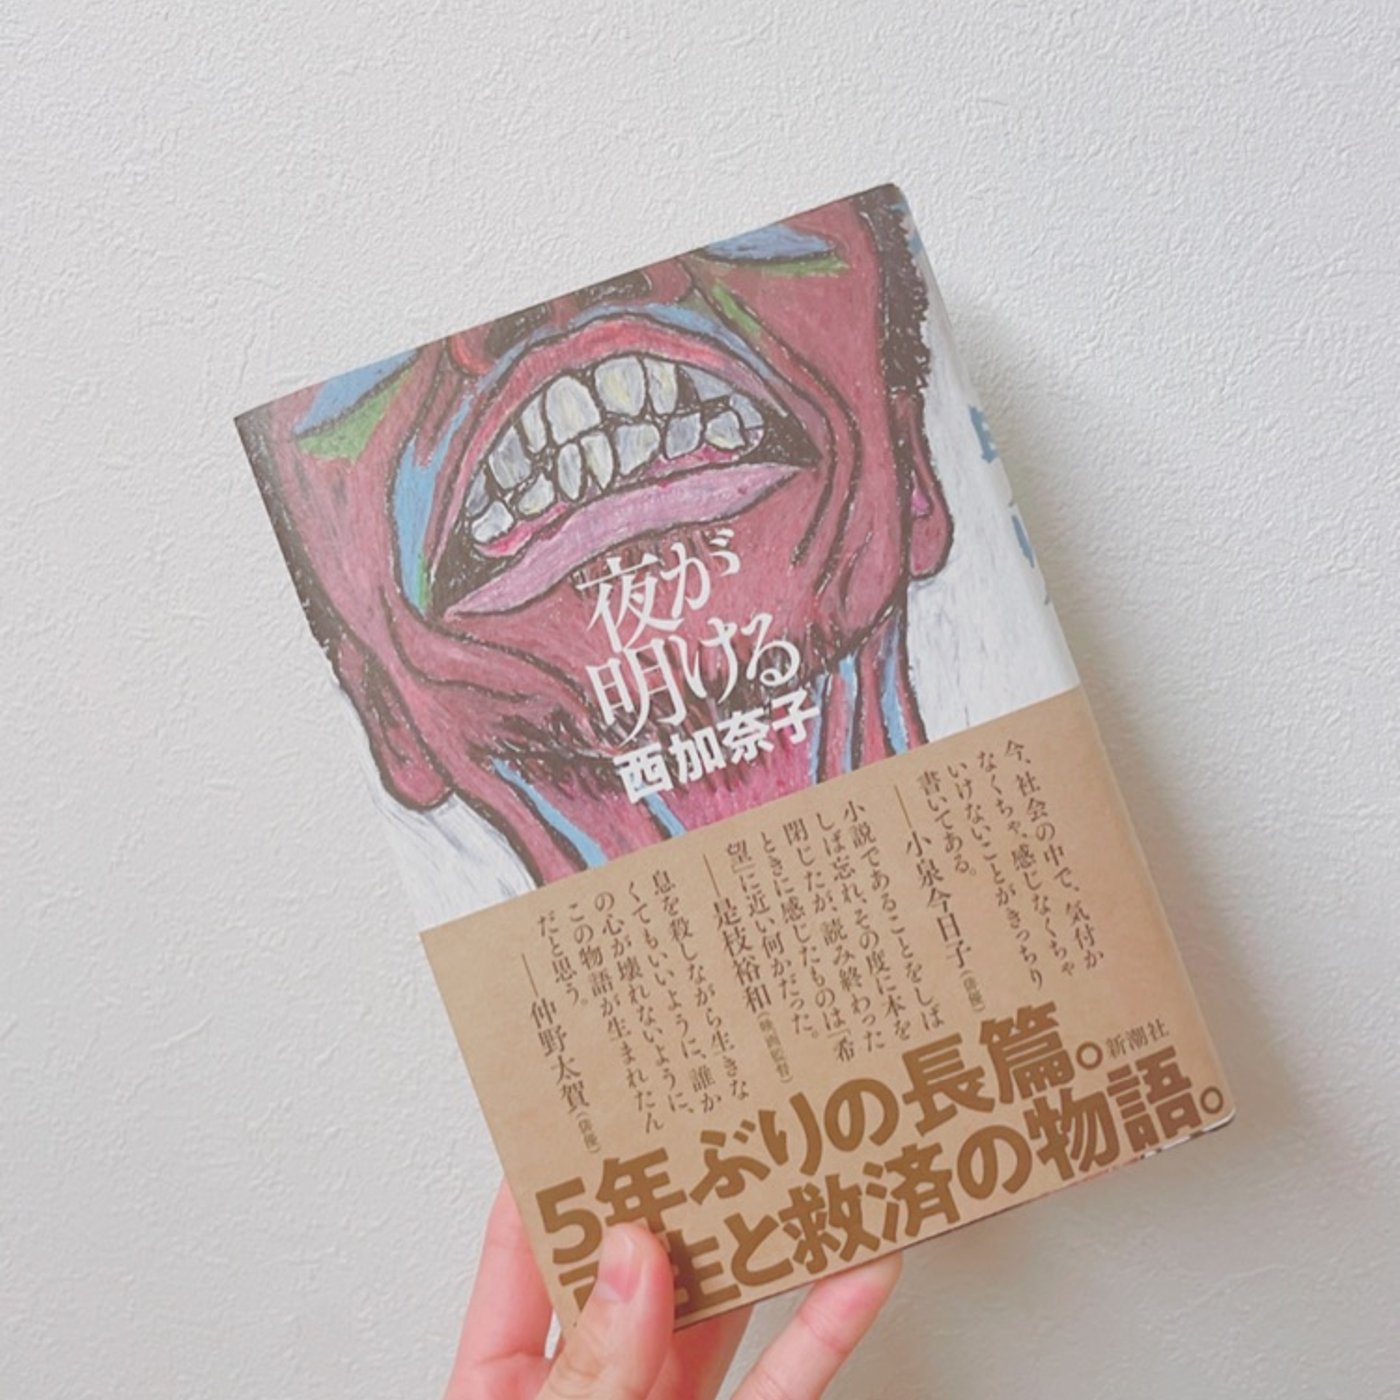 夜が
明ける
西加奈子
今、社会の中で、気付か
なくちゃ、感じなくちゃ
いけないことがきっちり
書いてある。
——小泉今日子(俳優)
小説であることをしば
しば忘れ、その度に本を
閉じたが、読み終わった
ときに感じたものは「希
望」に近い何かだった。
——是枝裕和(映画監督)
息を殺しながら生きな
くてもいいように、誰か
の心が壊れないように、
この物語が生まれたん
だと思う。
——仲野太賀(俳優)
新潮社
5年ぶりの長篇。
再生と救済の物語。